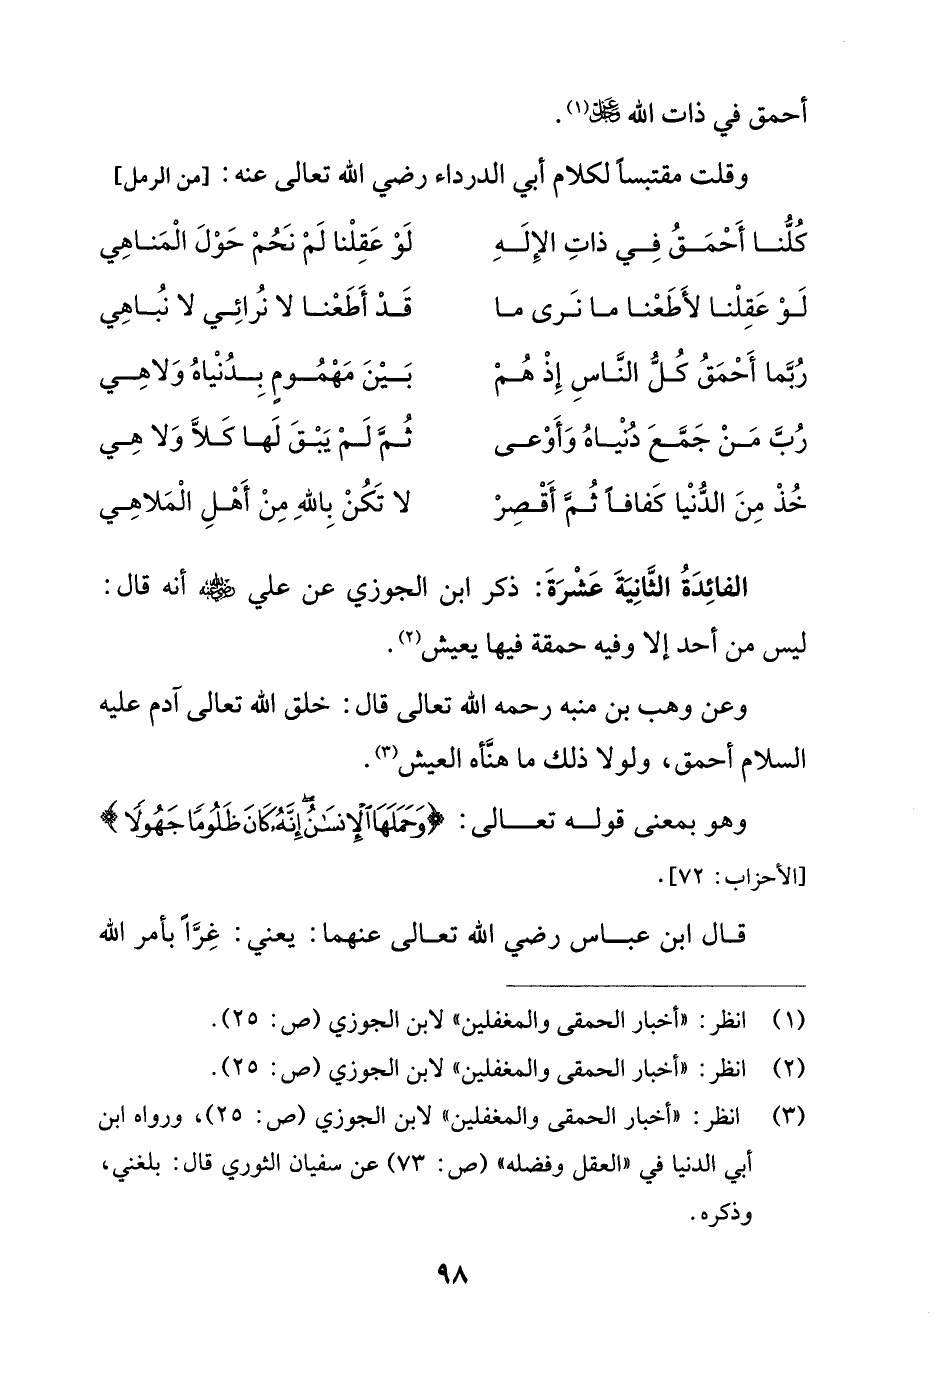 أحمق في ذات الله ﷻ(١).
وقلت مقتبساً لكلام أبي الدرداء رضي الله تعالى عنه: [من الرمل]
كُلُّنــا أَحْمَــقُ فِــي ذاتِ الإِلَــهِ لَوْ عَقِلْنا لَمْ نَحُمْ حَوْلَ الْمَنـاهِي
لَـوْ عَقِلْنـا لأَطَعْنـا مـا نَـرى مـا قَـدْ أَطَعْنـا لا نُرائِـي لا نُبـاهِي
رُبَّما أَحْمَقُ كُـلُّ النَّـاسِ إِذْ هُـمْ بَــيْنَ مَهْمُــومٍ بِــدُنْياهُ وَلاهِــي
رُبَّ مَـنْ جَمَّـعَ دُنْيـاهُ وَأَوْعـى ثُـمَّ لَـمْ يَبْـقَ لَهـا كَـلاًّ وَلا هِـي
خُذْ مِنَ الدُّنْيا كَفافـاً ثُـمَّ أَقْـصِرْ لا تَكُنْ بِاللهِ مِنْ أَهْـلِ الْمَلاهِـي
الفائِدَةُ الثَّانِيَةَ عَشْرَةَ: ذكر ابن الجوزي عن علي رضي الله عنه أنه قال:
ليس من أحد إلا وفيه حمقة فيها يعيش(٢).
وعن وهب بن منبه رحمه الله تعالى قال: خلق الله تعالى آدم عليه
السلام أحمق، ولولا ذلك ما هنَّأه العيش(٣).
وهو بمعنى قولـه تعـــالى: ﴿وَحَمَلَهَا ٱلْإِنسَـٰنُ ۖ إِنَّهُۥ كَانَ ظَلُومًا جَهُولًا﴾
[الأحزاب: ٧٢].
قـال ابن عبـاس رضي الله تعـالى عنهمـا: يعني: غِرَّاً بأمر الله
(١) انظر: «أخبار الحمقى والمغفلين» لابن الجوزي (ص: ٢٥).
(٢) انظر: «أخبار الحمقى والمغفلين» لابن الجوزي (ص: ٢٥).
(٣) انظر: «أخبار الحمقى والمغفلين» لابن الجوزي (ص: ٢٥)، ورواه ابن
أبي الدنيا في «العقل وفضله» (ص: ٧٣) عن سفيان الثوري قال: بلغني،
وذكره.
٩٨